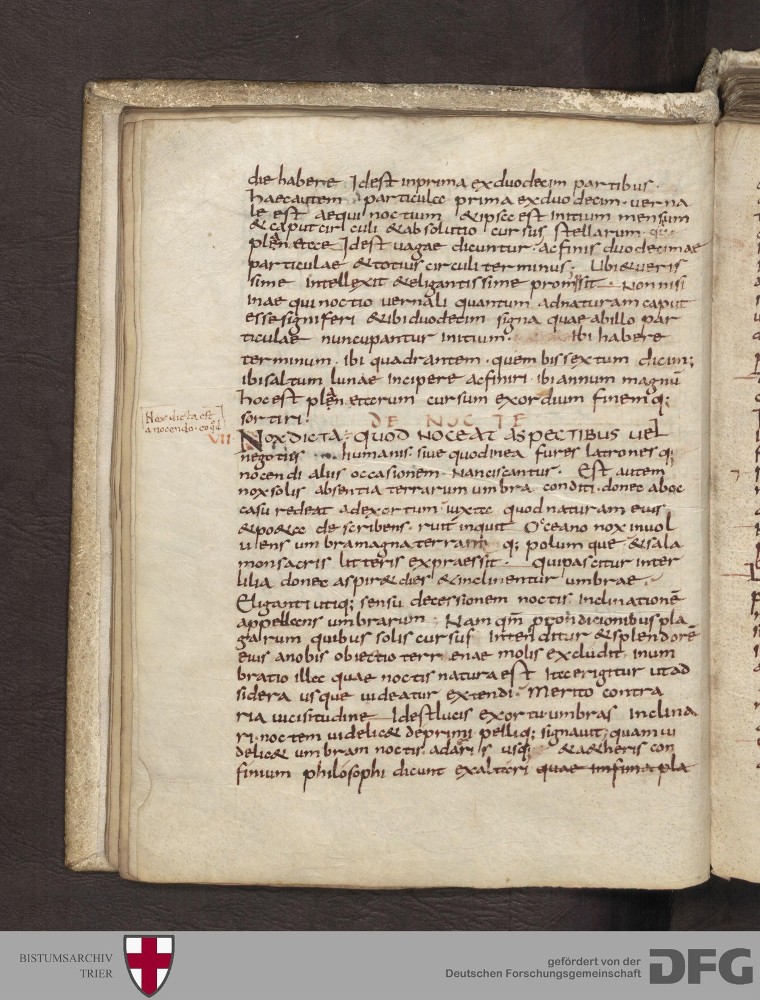 die habere Idest inprima exduodecim partibus.
haecautem particulæ prima exduodecim. verna
le est aequinoctium &ipsæ est initium mensium
&caput circuli &absolutio cursus stellarum.
plan etæ Idest vagae dicuntur. acfinis duodecimae
particulae &totius circuli terminus; Ubi&veris
sime intellexit &eligantissime promisit. Nonnisi
inae quinoctio vernali quantum adnaturam caput
essesigniferi &ibiduodecim signa quae abillo par
ticulae nuncupantur initium. ibi habere
terminum. ibi quadrantem. quem bissextum dicim;
ibisaltum lunae incipere acfiniri. ibiannum magnū
hocest plan etarum cursum exordium finemq;
sortiri. DE NOCTE
Nox dicta est
a nocendo. eo qđ
VII NOXDICTA. QUOD NOCEAT ASPECTIBUS UEL
negotiis humanis siue quodinea fures latronesq;
nocendi aliis occasionem. Nanciscantur. Est autem
noxsolis absentia terrarum umbra conditi. donec aboc
casu redeat adexortum. iuxta quod naturam eius
&po&æ describens. ruit inquit Oceano nox inuol
uens umbramagnaterram q; polumque. &sala
monsacris litteris expraessit. Quipascitur inter
lilia donec aspir&dies &inclinentur umbrae.
Eligantiutiq; sensu decessionem noctis. Inclinationē
appellans umbrarum. Nam qm̄ procondicionibuspla
garum quibus solis cursus Intenditur &splendorē
eius anobis obiectio terrenae molis excludit. inum
bratio illæ quae noctis naturaest Itaerigitur utad
sidera usque uideatur extendi. Merito contra
ria uicisitudine Idestlucis exortuumbras Inclina
ri. noctem uidelic& deprimi pelliq; signauit; quamui
delic& umbram noctis adaeris usq; &a&heris con
finium philosophi dicunt exaltari quae infima pla
BISTUMSARCHIV
TRIER
gefördert von der
Deutschen Forschungsgemeinschaft
DFG